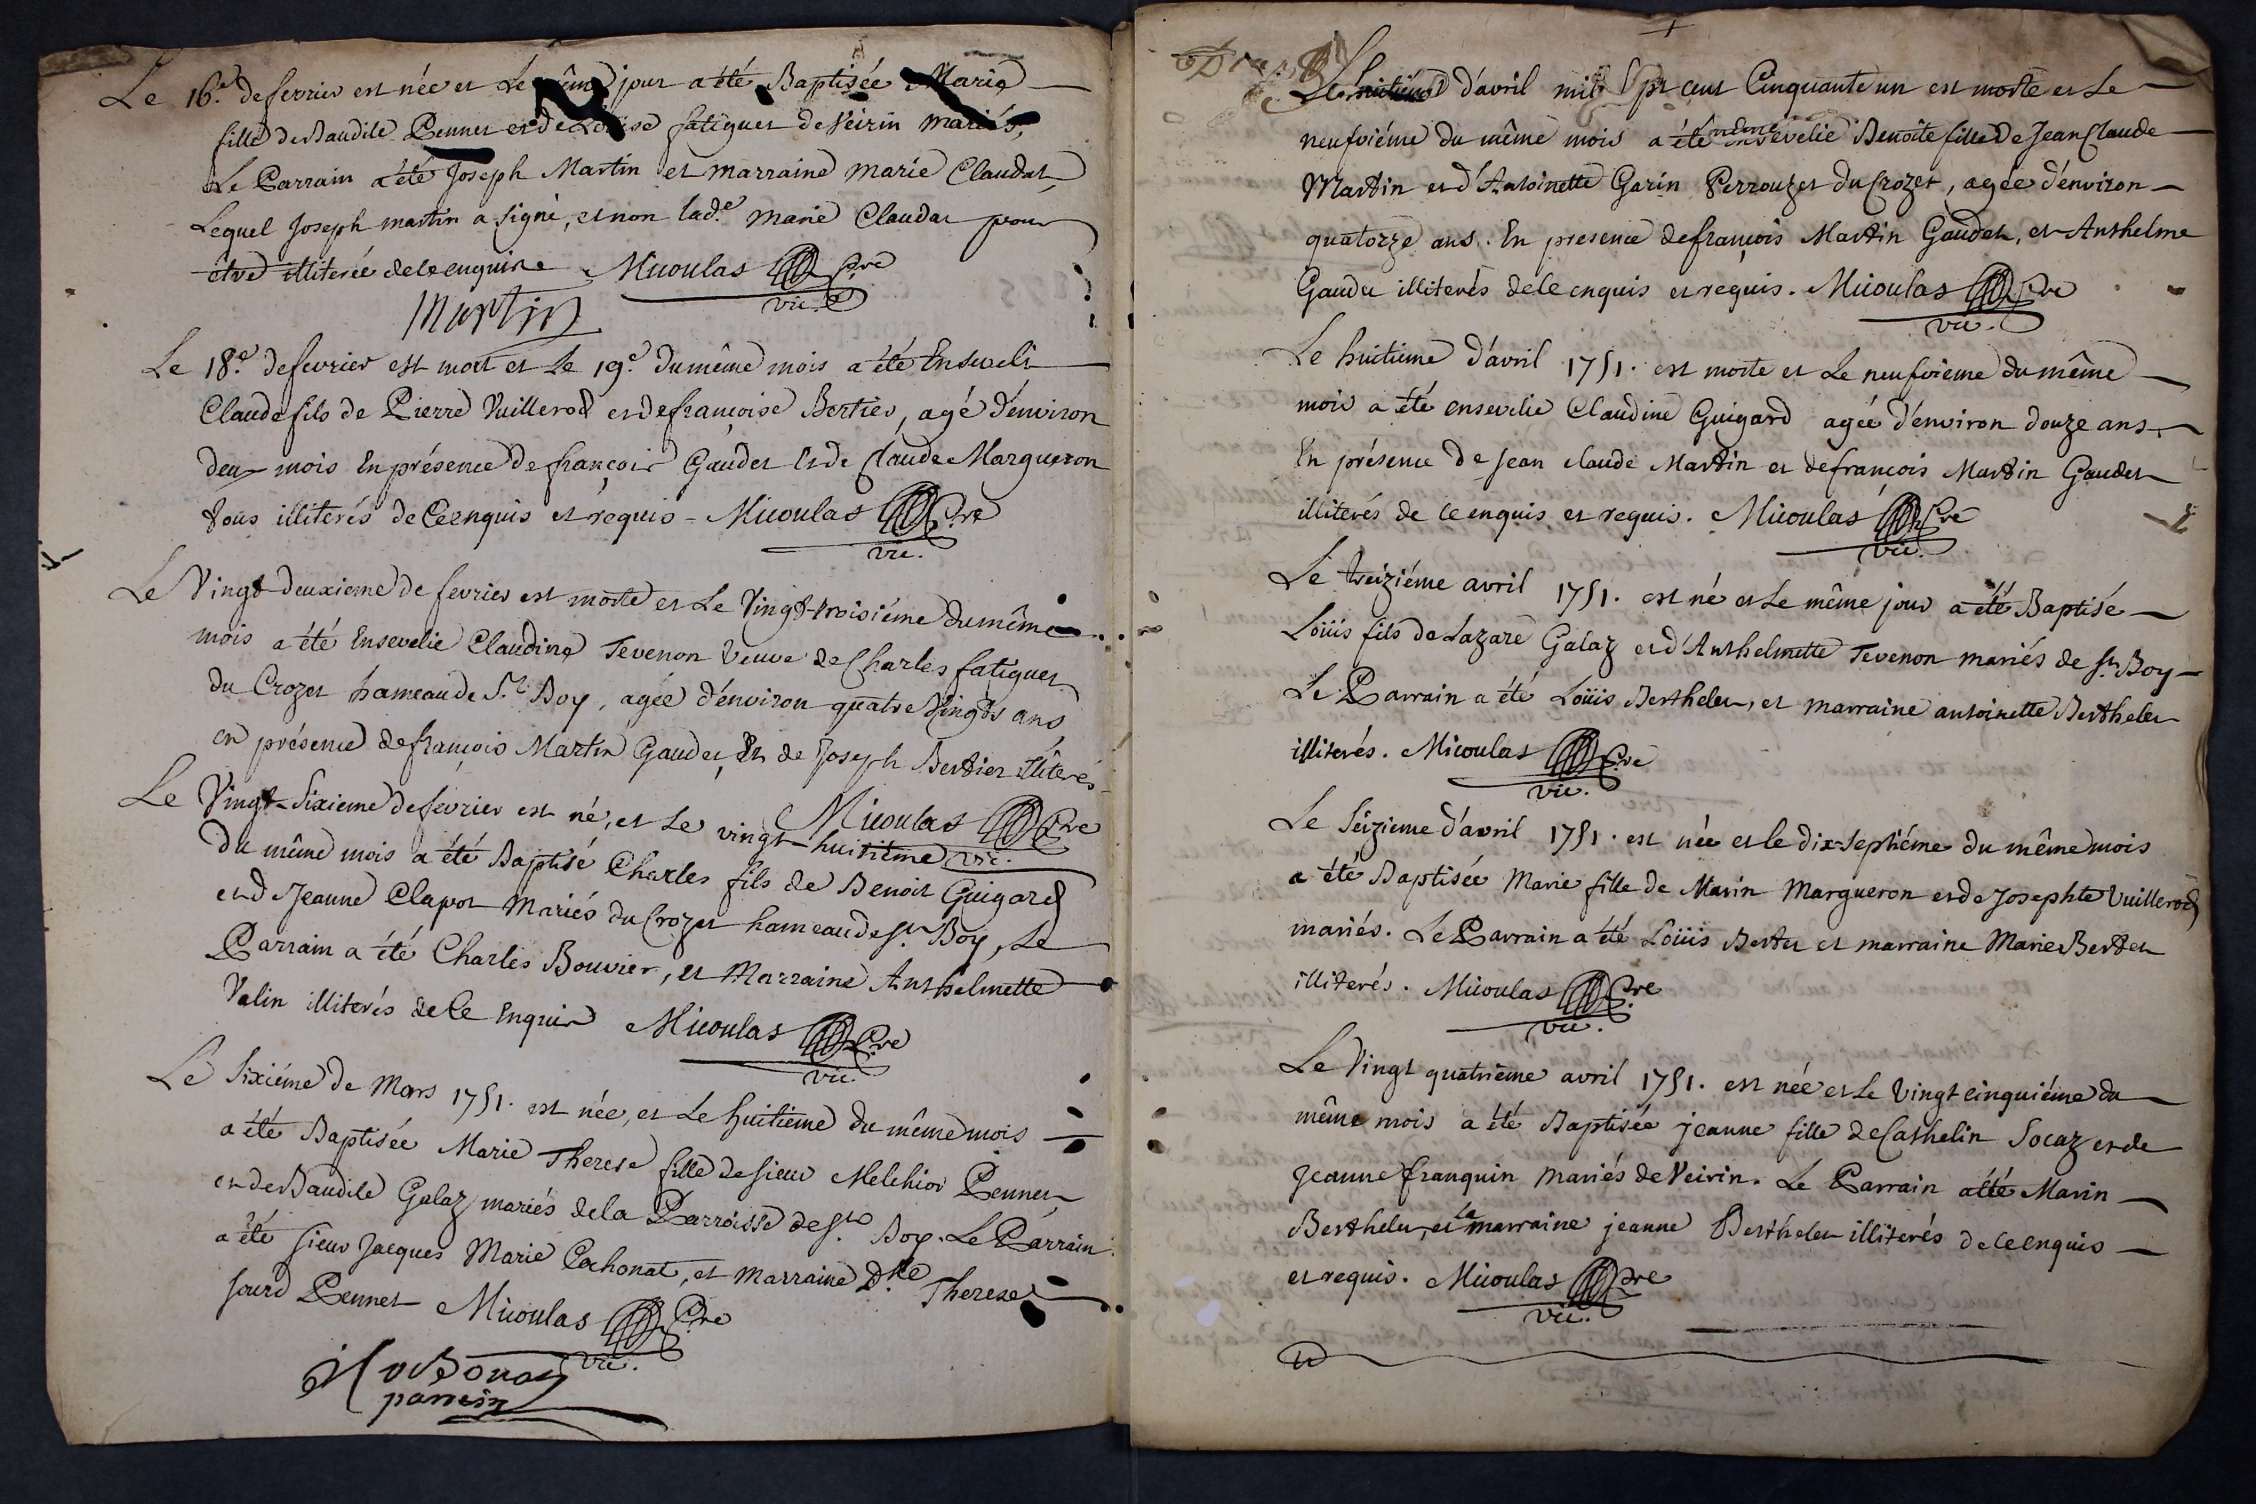 Le 16.e de fevrier est née et Le même jour a été Baptisée Marie
fille de Baudile Pennet et de Loüise fatiguet de Veirin mariés,
Le Parrain a été Joseph Martin et marraine marie Claudat,
Lequel Joseph martin a signé, et non lad.e marie Claudat pour
être illiterée de ce enquise Micoulas Pre
vic.
Martin
Le 18.e de fevrier est mort et Le 19.e du même mois a été Enseveli
Claude fils de Pierre Vuillerod et de françoise Bertier, agé d'environ
deux mois En présence de françois Gaudet et de Claude Margueron
tous illiterés de Ce enquis et requis - Micoulas Pre
vic.
Le Vingt-deuxieme de fevrier est morte et Le Vingt-troisiéme du même
mois a été Ensevelie Claudine Tevenon Veuve de Charles fatiguet
du Crozet hameau de S.t Boy, agée d'environ quatre Vingts ans
en présence de françois Martin Gaudet, Et de Joseph Bertier illiterés
Micoulas Pre
vic.
Le Vingt-Sixieme de fevrier est né, et Le vingt-huitième
du même mois a été Baptisé Charles fils de Benoit Guigard
et de Jeanne Clapot Mariés du Crozet hameau de St Boy, Le
Parrain a été Charles Bouvier, et Marraine Anthelmette
Valin illiterés de Ce Enquis Micoulas Pre
vic.
Le Sixiéme de Mars 1751. est née, et Le huitieme du même mois
a été Baptisée Marie Therese fille de sieur Melchior Pennet
et de Baudile Galaz mariés de la Parroisse de St Boy. Le Parrain
a été sieur Jacques Marie Cochonat, et Marraine Dlle Therese
Jourd Pennet Micoulas Pre
vic.
parrein
Le huitiéme d'avril mil sept cent Cinquante un est morte et Le
neufviéme du même mois a été ensevelie Benoite fille de Jean Claude
Martin et d'Antoinette Garin Perrouzet du Crozet, agée d'environ
quatorze ans. En presence de françois Martin Gaudet, et Anthelme
Gaudet illiterés de ce enquis et requis. Micoulas Pre
vic.
Le huitieme d'avril 1751. est morte et Le neufvieme du même
mois a été ensevelie Claudine Guigard agée d'environ douze ans
En présence de Jean Claude Martin et de françois Martin Gaudet
illiterés de ce enquis et requis. Micoulas Pre
vic.
Le treiziéme avril 1751. est né et Le même jour a été Baptisé
Loüis fils de Lazare Galaz et d'Anthelmette Tevenon mariés de St Boy
Le Parrain a été Loüis Berthelet, et marraine antoinette Berthelet
illiterés. Micoulas Pre
vic.
Le Seizieme d'avril 1751. est née et le dix-septiéme du même mois
a été Baptisée Marie fille de Marin Margueron et de Josephte Vuillerod
mariés. Le Parrain a été Loüis Bertet et marraine Marie Bertet
illiterés. Micoulas Pre
vic.
Le Vingt quatrième avril 1751. est née et Le Vingt cinquiéme du
même mois a été Baptisée jeanne fille de Cathelin Socaz et de
Jeanne franquin Mariés de Veirin. Le Parrain a été Marin
Berthelet, et la marraine jeanne Berthelet illiterés de ce enquis
et requis. Micoulas Pre
vic.